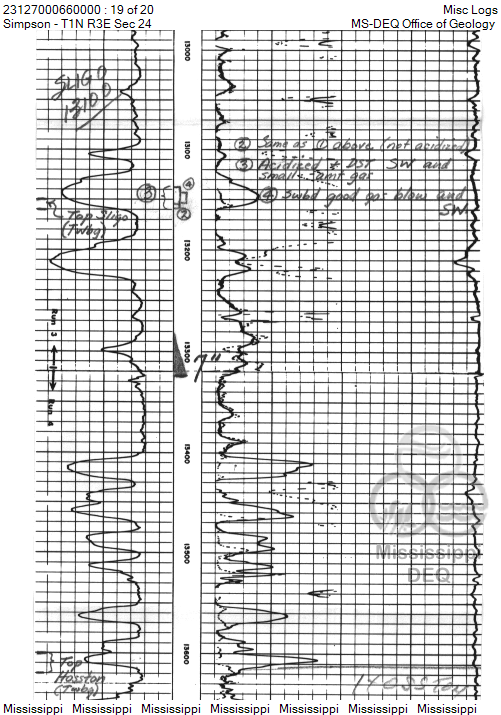 23127000660000 : 19 of 20
Misc Logs
Simpson - T1N R3E Sec 24
MS-DEQ Office of Geology
13000
SLIGO
13100
13100
② Same as ① above (not acidized)
③ Acidized & DST SW and
small amt gas
④ Swbd good gas blow and
SW
③
④
②
Top Sligo
(Twbg)
13200
Run 3
13300
7"
Run 4
13400
Mississippi
DEQ
13500
13600
Top
Hosston
(Twbg)
Mississippi Mississippi Mississippi Mississippi Mississippi Mississippi Mississippi